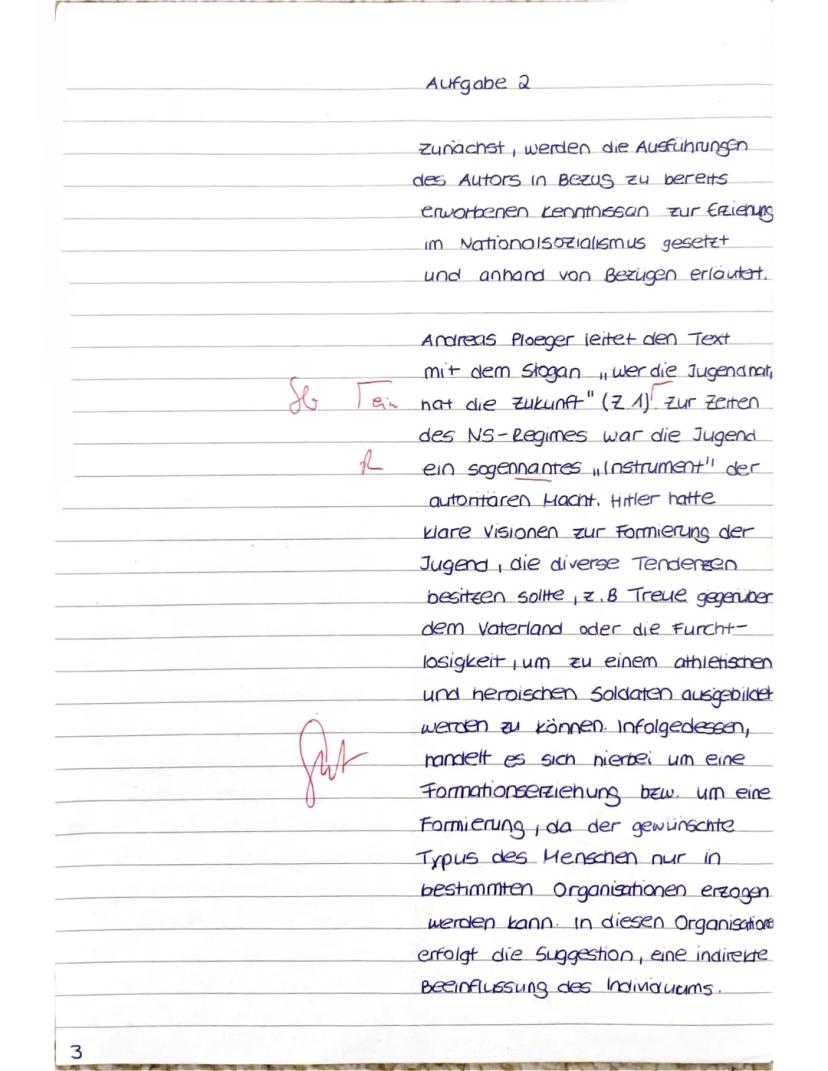 Aufgabe 2
zunächst, werden die Ausführungen
des Autors in Bezug zu bereits
erworbenen Kenntnissan zur Erziehung
im Nationalsozialismus gesetzt
und anhand von Bezügen erläutert.
Andreas Ploeger leitet den Text
mit dem Slogan „wer die Jugend hat,
Sb ein hat die Zukunft" (Z 1) zur Zeiten
des NS-Regimes war die Jugend
R ein sogennantes „Instrument" der
autoritären Macht. Hitler hatte
klare Visionen zur Formierung der
Jugend, die diverse Tendenzen
besitzen sollte, z.B Treue gegenüber
dem Vaterland oder die Furcht-
losigkeit, um zu einem athletischen
und heroischen Soldaten ausgebildet
werden zu können. Infolgedessen,
Gut handelt es sich hierbei um eine
Formationserziehung bzw. um eine
Formierung, da der gewünschte
Typus des Menschen nur in
bestimmten Organisationen erzogen
werden kann. In diesen Organisations
erfolgt die Suggestion, eine indirekte
Beeinflussung des Individuums.
3